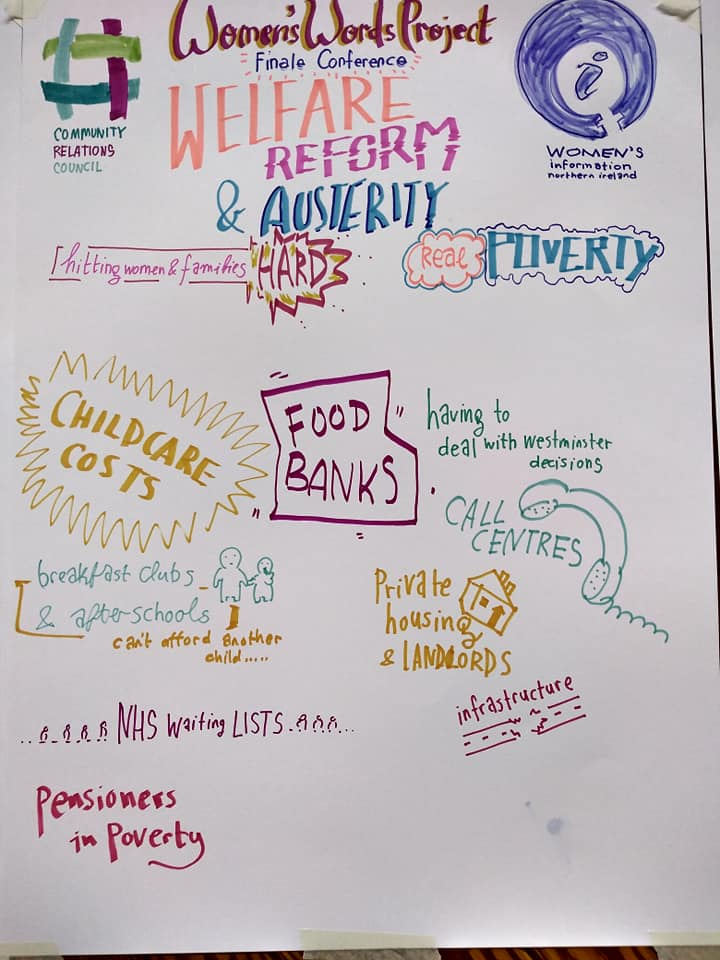 Women's Words Project
Finale Conference
WELFARE
REFORM
& AUSTERITY
COMMUNITY
RELATIONS
COUNCIL
i
WOMEN'S
information
northern ireland
hitting women & families HARD
Real POVERTY
CHILDCARE
COSTS
FOOD
BANKS
having to
deal with westminster
decisions
CALL
CENTRES
breakfast clubs
& afterschools
can't afford another
child.....
Private
housing
& LANDLORDS
NHS Waiting LISTS
infrastructure
Pensioners
in Poverty